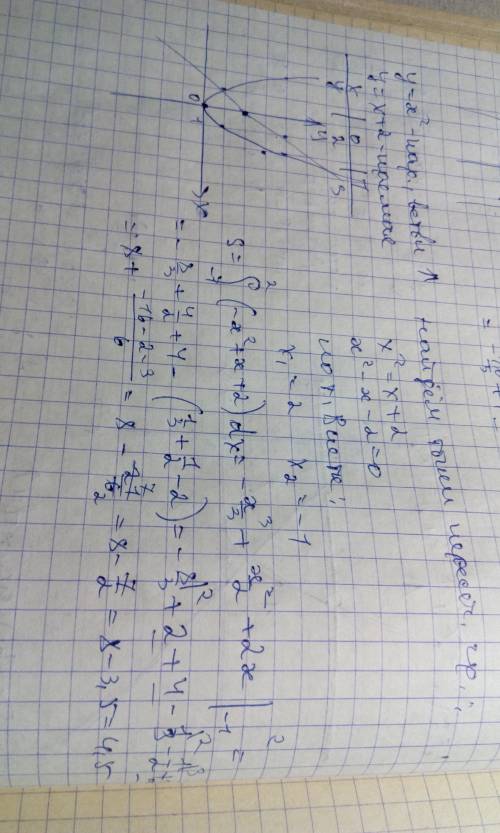 y = x² - пар., ветви ↑
y = x+2 - прямая
x | 0 | 1
y | 2 | 3
y
x
0
1
найдём точки пересеч. гр.:
x² = x + 2
x² - x - 2 = 0
по т. Виета:
x₁ = 2 x₂ = -1
S = ∫₋₁² (-x² + x + 2) dx = - x³/3 + x²/2 + 2x |₋₁² =
= - 8/3 + 4/2 + 4 - (1/3 + 1/2 - 2) = - 8/3 + 2 + 4 - 1/3 - 1/2 +
= 8 + (-16 - 2 - 3)/6 = 8 - 21/6 = 8 - 7/2 = 8 - 3,5 = 4,5